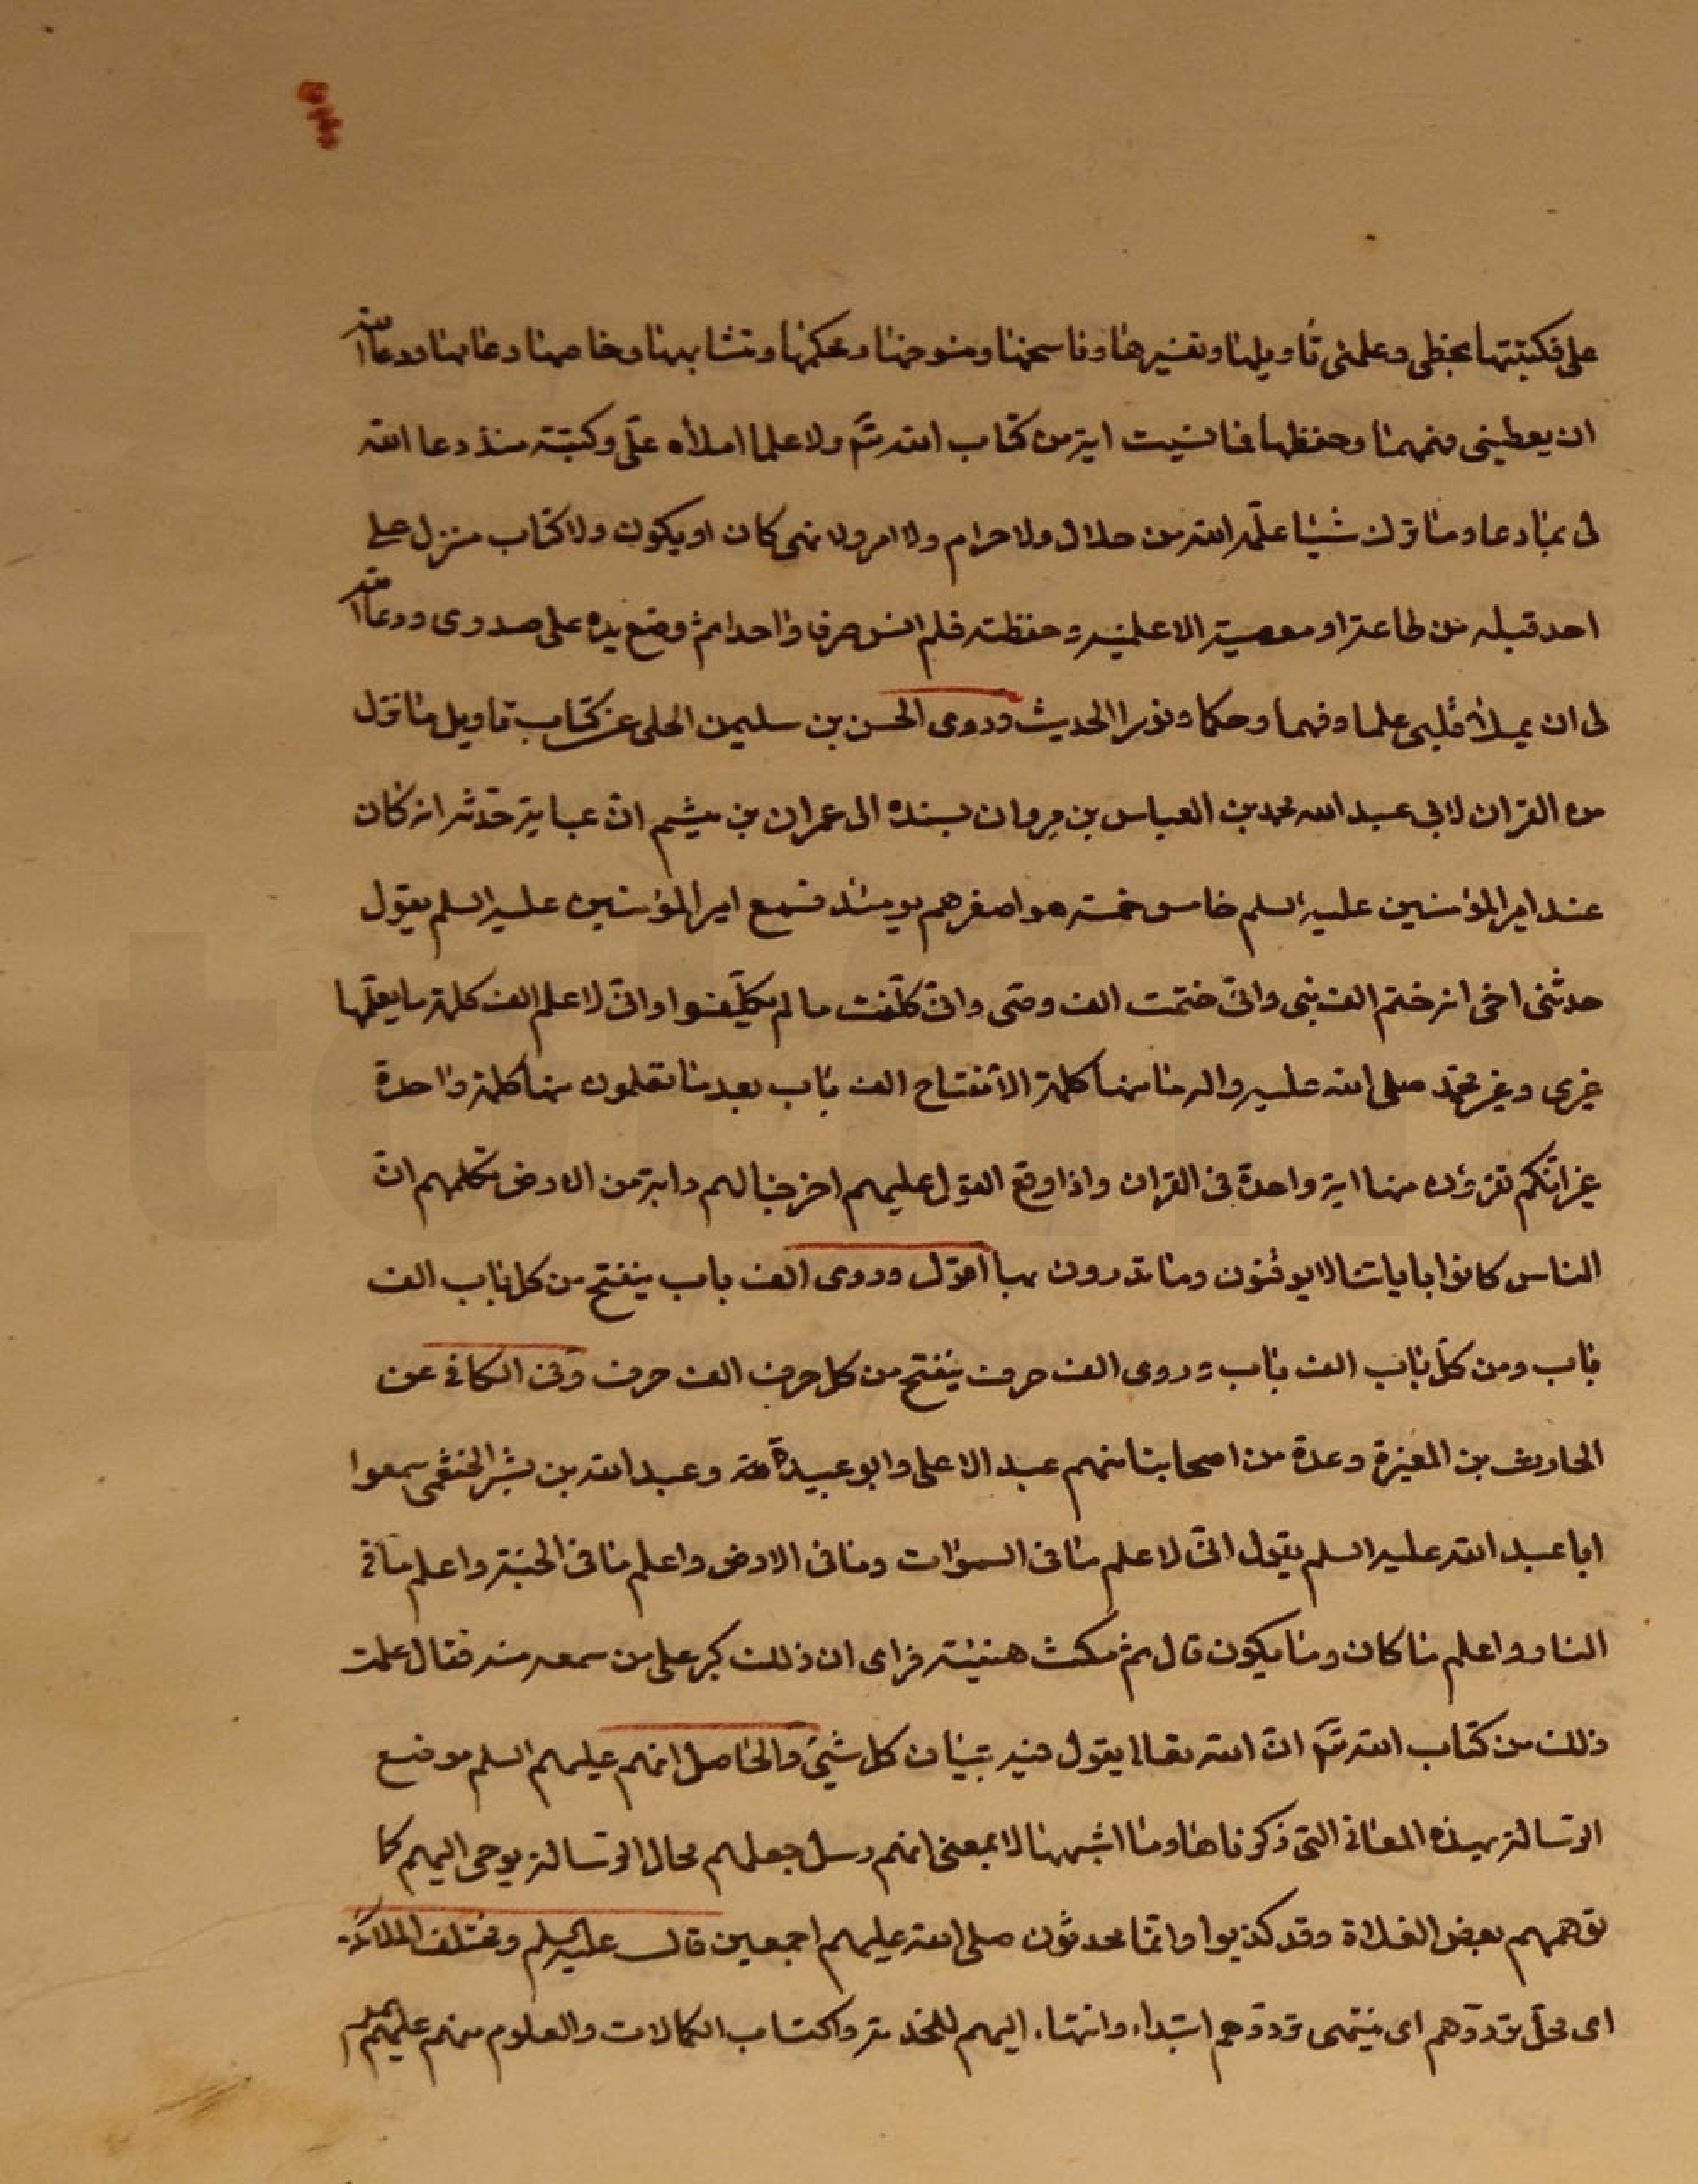 على فكتبتها بخطى وعلمنى تأويلها وتفسيرها وناسخها ومنسوخها ومحكمها ومتشابهها وخاصها وعامها ودعا الله
ان يعطينى فهمها وحفظها فما نسيت اية من كتاب الله تعم ولا علما املأه علّى وكتبته منذ دعا الله
لى بما دعا وما ترك شيئا علّمه الله من حلال ولا حرام ولا امر ولا نهى كان او يكون ولا كتاب منزل على
احد قبله من طاعة او معصية الا علمنيه وحفظته فلم انس حرفا واحدا ثم وضع يده على صدرى ودعا الله
لى ان يملأ قلبى علما وفهما وحكما ونورا الحديث وروى الحسن بن سليمن الحلى عن كتاب تاويل ما نزل
من القران لابى عبد الله محمد بن العباس بن مروان بسنده الى عمران بن ميثم انّ عباية حدّثه انه كان
عند امير المؤمنين عليه السلم خامس خمسة هو اصغرهم يومئذ فسمع امير المؤمنين عليه السلم يقول
حدثنى اخى انه ختم الف نبى وانّى ختمت الف وصّى وانّى كلّفت ما لم يكلّفوا وانّى لاعلم الف كلمة ما يعلّمها
غيرى وغير محمّد صلى الله عليه واله ما منها كلمة الا مفتاح الف باب بعد ما تعلمون منها كلمة واحدة
غير انّكم تقرؤن منها اية واحدة فى القران واذا وقع القول عليهم اخرجنا لهم دابة من الارض تكلمهم انّ
الناس كانوا باياتنا لا يوقنون وما تدرون بها اقول وروى الف باب ينفتح من كل باب الف
باب ومن كلّ باب الف باب وروى الف حرف ينفتح من كل حرف الف حرف وفى الكافى عن
الحاريث بن المغيرة وعدة من اصحابنا منهم عبد الاعلى وابو عبيدة وعبد الله بن بشر الخثعمى سمعوا
ابا عبد الله عليه السلم يقول انّى لاعلم ما فى السموات وما فى الارض واعلم ما فى الجنة واعلم ما فى
النار واعلم ما كان وما يكون قال ثم مكث هنيئة فراى ان ذلك كبر على من سمعه منه فقال علمت
ذلك من كتاب الله تعم انّ الله تعالى يقول فيه تبيان كل شيئ والحاصل انهم عليهم السلم موضع
الرّسالة بهذه المعانى التى ذكرناها وما اشبهها لا بمعنى انهم رسل جعلهم محال الرّسالة يوحى اليهم كما
توهمهم بعض الغلاة وقد كذبوا وانّما محدثون صلى الله عليهم اجمعين قال عليه السلم ومختلف الملائكة
اى محلّ تردّدهم اى منتهى تردّدهم ابتداء وانتهاء اليهم للخدمة واكتساب الكمالات والعلوم منهم عليهم السلم